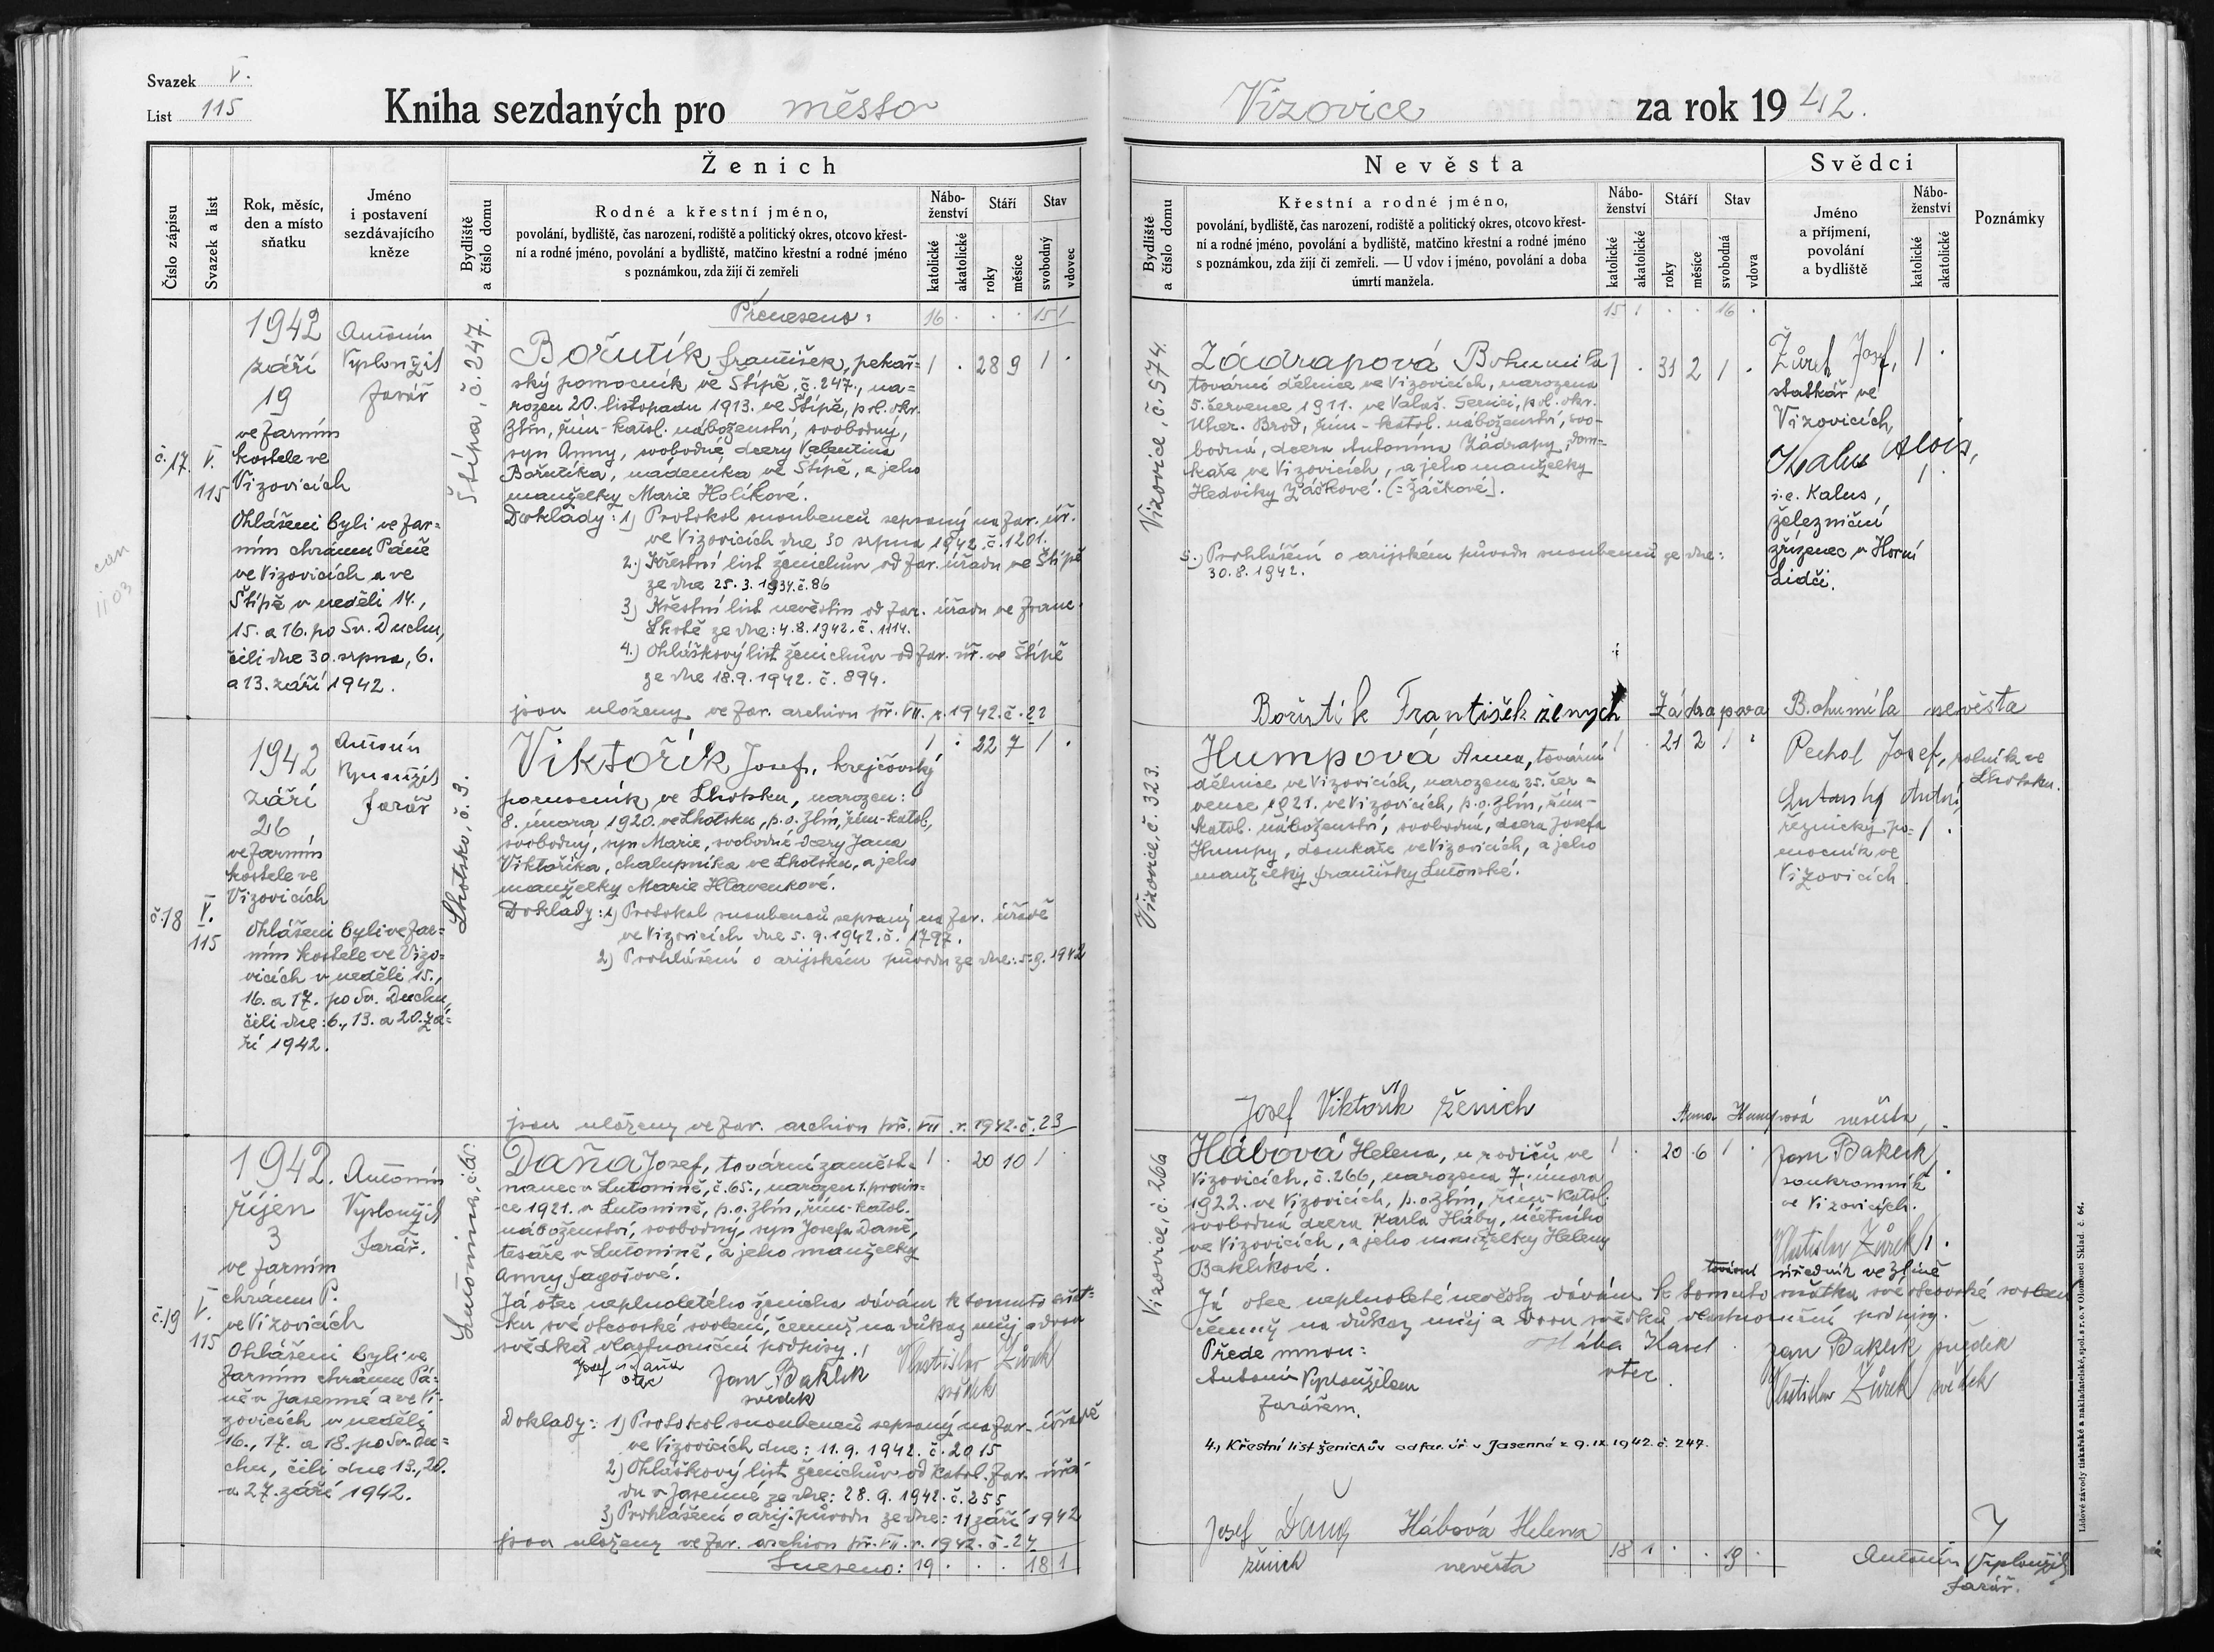 Svazek V.
List 115
Kniha sezdaných pro město
Číslo zápisu
Svazek a list
Rok, měsíc,
den a místo
sňatku
Jméno
i postavení
sezdávajícího
kněze
Ženich
Bydliště
a číslo domu
Rodné a křestní jméno,
povolání, bydliště, čas narození, rodiště a politický okres, otcovo křest-
ní a rodné jméno, povolání a bydliště, matčino křestní a rodné jméno
s poznámkou, zda žijí či zemřeli
Nábo-
ženství
katolické
akatolické
Stáří
roky
měsíce
Stav
svobodný
vdovec
Přeneseno: 16 . . . 15 1
č. 17.
V.
115
1942
září
19
ve farním
kostele ve
Vizovicích
Ohlášeni byli ve far=
ním chrámu Páně
ve Vizovicích a ve
Štípě v neděli 14.,
15. a 16. po Sv. Duchu,
čili dne 30. srpna, 6.
a 13. září 1942.
Antonín
Vyplonžil
farář
Štípa, č. 247.
Bořutík František, pekař=
ský pomocník ve Štípě, č. 247., na=
rozen 20. listopadu 1913. ve Štípě, pol. okr.
Zlín, řím-katol. náboženství, svobodný,
syn Anny, svobodné dcery Valentina
Bořutíka, nádeníka ve Štípě, a jeho
manželky Marie Holíkové.
1 . 28 9 1 .
Doklady: 1) Protokol snoubenců sepsaný na far. úř.
ve Vizovicích dne 30 srpna 1942. č. 1201.
2.) Křestní list ženichův od far. úřadu ve Štípě
ze dne 25. 3. 1934. č. 86
3) Křestní list nevěstin od far. úřadu ve Franc.
Lhotě ze dne: 4. 8. 1942. č. 1114.
4.) Ohláškový list ženichův od far. úř. ve Štípě
ze dne 18. 9. 1942. č. 894.
jsou uloženy ve far. archivu př. VII. r. 1942. č. 22
č. 18
V.
115
1942
září
26
ve farním
kostele ve
Vizovicích
Ohlášeni byli ve far=
ním kostele ve Vizo=
vicích v neděli 15.,
16. a 17. po Sv. Duchu,
čili dne: 6., 13. a 20. zá=
ří 1942.
Antonín
Vyplonžil
farář
Lhotsko, č. 3.
Viktořík Josef, krejčovský
pomocník ve Lhotsku, narozen:
8. února 1920. ve Lhotsku, p. o. Zlín, řím-katol.,
svobodný, syn Marie, svobodné dcery Jana
Viktoříka, chalupníka ve Lhotsku, a jeho
manželky Marie Hlavenkové.
1 . 22 7 1 .
Doklady: 1) Protokol snoubenců sepsaný na far. úřadě
ve Vizovicích dne 5. 9. 1942. č. 1797.
2) Prohlášení o arijském původu ze dne: 5. 9. 1942
jsou uloženy ve far. archivu př. VII. r. 1942. č. 23
č. 19
V.
115
1942.
říjen
3
ve farním
chrámu P.
ve Vizovicích
Ohlášeni byli ve
farním chrámu Pá=
ně v Jasenné a ve Vi-
zovicích v neděli
16., 17. a 18. po Sv. Du=
chu, čili dne 13., 20.
a 27. září 1942.
Antonín
Vyplonžil
farář.
Lutonina, č. 65.
Daňa Josef, tovární zaměst-
nanec v Lutonině, č. 65., narozen 1. prosin-
ce 1921. v Lutonině, p. o. Zlín, řím-katol.
náboženství, svobodný, syn Josefa Daně,
tesaře v Lutonině, a jeho manželky
Anny Fagošové.
1 . 20 10 1 .
Já otec neplnoletého ženicha dávám k tomuto sňat-
ku své otcovské svolení, čemuž na důkaz můj a dvou
svědků vlastnoruční podpisy.
Josef Daňa
otec
Jan Baklík
svědek
Vlastislav Žůrek
svědek
Doklady: 1) Protokol snoubenců sepsaný na far. úřadě
ve Vizovicích dne: 11. 9. 1942. č. 2015
2) Ohláškový list ženichův od katol. far. úřa-
du v Jasenné ze dne: 28. 9. 1942. č. 255
3) Prohlášení o arij. původu ze dne: 11 září 1942
jsou uloženy ve far. archivu př. VII. r. 1942. č. 24
Sneseno: 19 . . . 18 1
Vizovice za rok 1942.
Nevěsta
Bydliště
a číslo domu
Křestní a rodné jméno,
povolání, bydliště, čas narození, rodiště a politický okres, otcovo křest-
ní a rodné jméno, povolání a bydliště, matčino křestní a rodné jméno
s poznámkou, zda žijí či zemřeli. — U vdov i jméno, povolání a doba
úmrtí manžela.
Nábo-
ženství
katolické
akatolické
Stáří
roky
měsíce
Stav
svobodná
vdova
Svědci
Jméno
a příjmení,
povolání
a bydliště
Nábo-
ženství
katolické
akatolické
Poznámky
15 1 . . 16 .
Vizovice, č. 574.
Zádrapová Bohumila
tovární dělnice ve Vizovicích, narozena
5. července 1911. ve Valaš. Senici, pol. okr.
Uher. Brod, řím-katol. náboženství, svo-
bodná, dcera Antonína Zádrapy, dom=
káře ve Vizovicích, a jeho manželky
Hedviky Žáčkové. (= Žáčkové).
1 . 31 2 1 .
5.) Prohlášení o arijském původu snoubenců ze dne:
30. 8. 1942.
Žůrek Josef, 1 .
statkář ve
Vizovicích,
Kalus Alois,
i. e. Kalus, 1 .
železniční
zřízenec v Horní
Lidči.
Bořutík František ženych Zádrapova Bohumila nevěsta
Vizovice, č. 323.
Humpová Anna, tovární
dělnice ve Vizovicích, narozena 25. čer=
vence 1921. ve Vizovicích, p. o. Zlín, řím-
katol. náboženství, svobodná, dcera Josefa
Humpy, domkaře ve Vizovicích, a jeho
manželky Františky Lutonské.
1 . 21 2 1 .
Pechol Josef, rolník ve
Lhotsku.
Lutonský
řeznický po= 1 .
mocník ve
Vizovicích
Josef Viktořík ženich Anna Humpová nevěsta
Vizovice, č. 266
Hábová Helena, u rodičů ve
Vizovicích, č. 266, narozena 7. února
1922. ve Vizovicích, p. o. Zlín, řím-katol.
svobodná dcera Karla Háby, účetního
ve Vizovicích, a jeho manželky Heleny
Baklíkové.
1 . 20 6 1 .
Jan Baklík
soukromník 1 .
ve Vizovicích.
Vlastislav Žůrek 1 .
tovární úředník ve Zlíně
Já otec neplnoleté nevěsty dávám k tomuto sňatku své otcovské svolení
čemuž na důkaz můj a dvou svědků vlastnoruční podpisy.
Přede mnou: Hába Karel Jan Baklík svědek
Antonín Vyplonžilem otec Vlastislav Žůrek svědek
farářem.
4.) Křestní list ženichův od far. úř. v Jasenné z 9. IX. 1942. č. 247.
Josef Daňa Hábová Helena
ženich nevěsta
18 1 . . 19 .
Antonín Vyplonžil
farář.
Lidové závody tiskařské a nakladatelské, spol. s r. o. v Olomouci Sklad. č. 64.